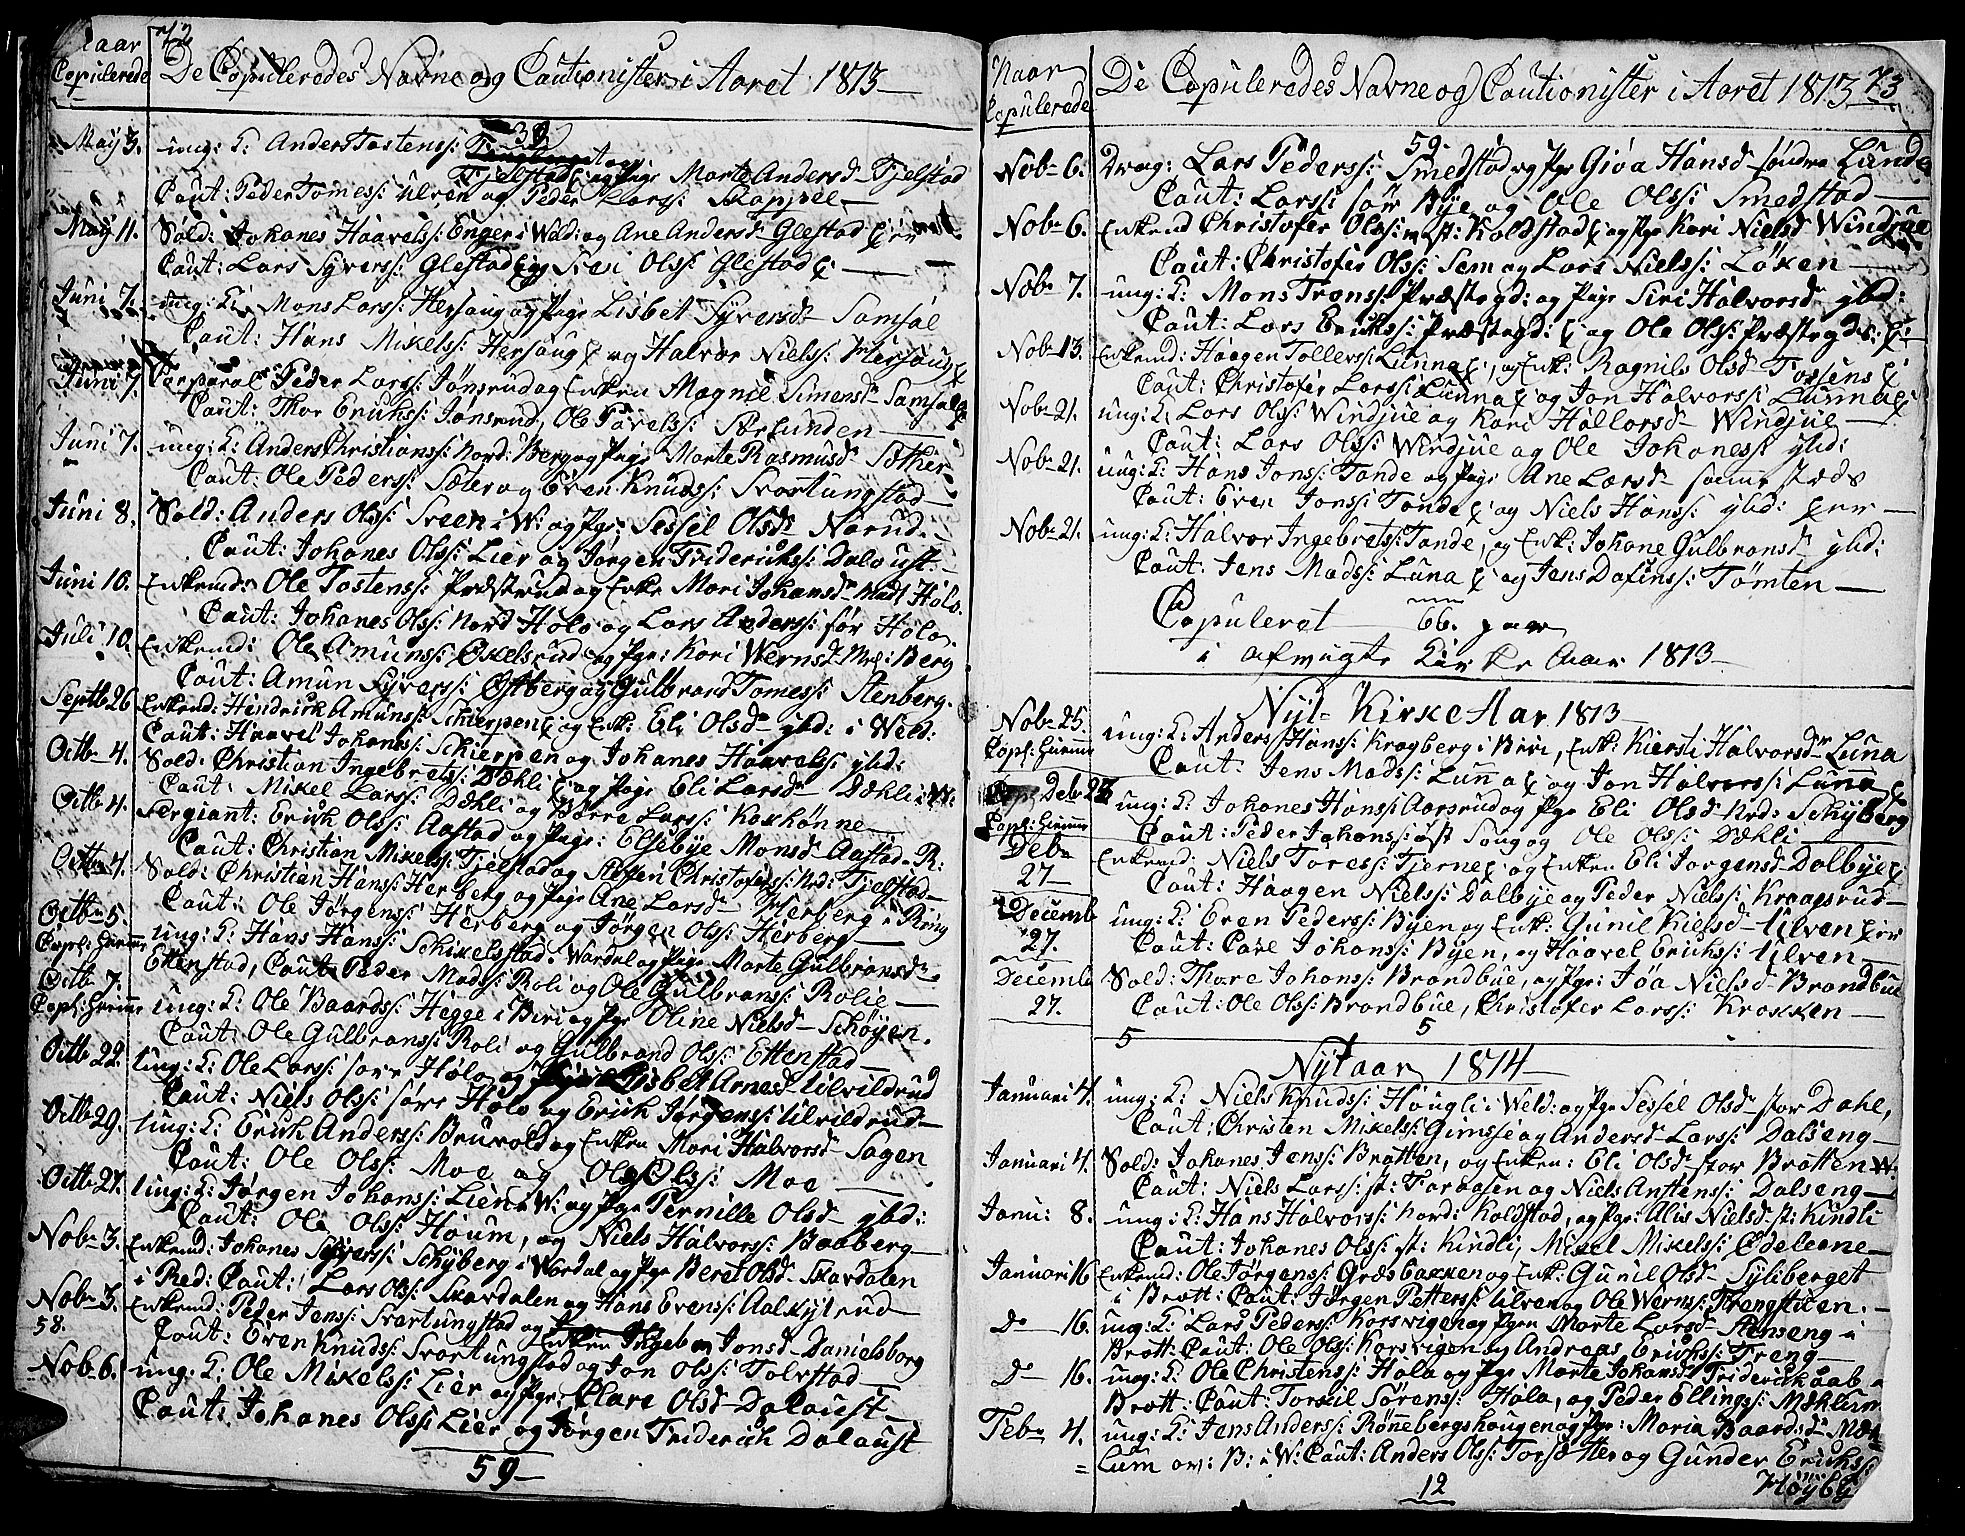 72
Naar
Copulerede
De Copuleredes Navne og Cautionister i Aaret 1813
38
May 3. ung: K: Anders Tostens:
Tjelstad og Pige Marte Andersd Tjelstad
Caut: Peder Tomess: Ulven og Peder Larss: Skappel
May 11. Sold: Johanes Haavelss: Enger i Wald: og Ane Andersd Glestad
Caut: Lars Syverss: Glestad og Iver Olss: Glestad
Juni 7. ung: K: Mons Larss: Hersaug og Pige Lisbet Syversd Samsal
Caut: Hans Mikelss: Hersaug og Halvor Nielss: Hersaug
Juni 7. Corporal Peder Larss: Jonsrud og Enken Magnil Simensd Samsal
Caut: Thor Erichss: Jonsrud, Ole Povelss: Alunden
Juni 7. ung: K: Anders Christianss: Nord: Berg og Pige Marte Rasmusd Sæther
Caut: Ole Pederss: Sæter og Even Knudss: Svartungstad
Juni 8. Sold: Anders Olss: Sveen i W: og Pge: Sessel Olsd Narud
Caut: Johanes Olss: Lier og Jørgen Friderichss: Dalaust
Juni 10. Enkemd: Ole Tostenss: Præstrud og Enke Mari Johansd Nadt Holo.
Caut: Johanes Olss: Nord Holo og Lars Anderss: sør Holo
Juli 10. Enkemd: Ole Amunss: Exelsrud og Pge: Kari Wernsd Mel: Berg
Caut: Amun Syverss: Østberg og Gulbrand Tomess: Stenberg.
Septb 26 Enkemd: Hendrick Amunss: Schierpen og Enk: Eli Olsd ybd: i Weld:
Caut: Haavel Johaness: Schierpen og Johanes Haavelss: ybd:
Octb 4. Sold: Christian Ingebretss: Dæhli og Pige Eli Larsd Dæhli i W:
Caut: Mikel Larss: Dæhli og Børre Larss: Kaxhønne
Octb 4. Sergiant: Erick Olss: Aastad og Pige: Elsebye Monsd Aastad R:
Caut: Christian Mikelss: Tjelstad og Steffen Christoferss: Nrd: Tjelstad
Octb 4. Sold: Christian Hanss: Herberg og Pige Ane Larsd Herberg i Ring
Caut: Ole Jørgenss: Herberg og Jørgen Olss: Herberg
Octb 5. ung: K: Hans Hanss: Schikelstad i Wardal og Pige Marte Gulbransd
Copl: Hiemme Ettenstad, Caut: Peder Madss: Roli og Ole Gulbranss: Rolie
Octb 7. ung: K: Ole Baardss: Hegge i Biri og Pge Oline Nielsd Schøyen.
Copl: Hiemme Caut: Ole Gulbranss: Roli og Gulbrand Olss: Ettenstad
Octb 22. ung: K: Ole Larss: søre Holo og Pige Lisbet Arnesd Ulvildrud
Caut: Niels Olss: søre Holo og Erich Jørgenss: Ulvildrud
Octb 29. ung: K: Erich Anderss: Bruvold og Enken Mari Halvorsd Sagen
Caut: Ole Olss: Moe og Ole Olss: Moe
Octb 27. ung: K: Jørgen Johanss: Lien i W: og Pge Pernille Olsd ybd:
Caut: Ole Olss: Houm, og Niels Halvorss: Baaberg
Nobr 3. Enkemd: Johanes Syverss: Schyberg i Wardal og Pge Beret Olsd Skardalen
i Red: Caut: Lars Olss: Skardalen og Hans Evenss: Aalkylrud
Nobr 3. Enkemd: Peder Jenss: Svartungstad og Enken Ingebor Jonsd Danielsborg
58.
Caut: Even Knudss: Svortungstad og Jon Olss: Tolvstad
Nob 6. ung: K: Ole Mikelss: Lier og Pge Clare Olsd Dalaust
Caut: Johanes Olss: Lier og Jørgen Friderich Dalaust
59
Naar
Copulerede
De Copuleredes Navne og Cautionister i Aaret 1813 73
59.
Nobr 6. Drag: Lars Pederss: Smedstad og Pge Gioa Hansd søndre Lunde
Caut: Larss: sør Bye og Ole Olss: Smedstad
Nobr 6. Enkemd Christofer Olss: st: Koldstad og Pge Kari Nielsd Windjue
Caut: Christofer Olss: Sem og Lars Nielss: Løken
Nobr 7. ung: K: Mons Tronss: Præstegd: og Pige Siri Halvorsd ybd:
Caut: Lars Erichss: Præstegd: og Ole Olss: Præstegd:
Nobr 13. Enkemd: Haagen Tollerss: Lunna, og Enk: Ragnils Olsd Tossens
Caut: Christofer Larss: Lunna og Jon Halvorss: Lunna
Nobr 21. ung: K: Lars Olss: Windjue og Kari Hallorsd Windjue
Caut: Lars Olss: Windjue og Ole Johaness: ybd:
Nobr 21. ung: K: Hans Jonss: Tande og Pige Ane Larsd samme steds
Caut: Even Jonss: Tande og Niels Hanss: ybd:
Nobr 21. ung: K: Halvor Ingebretss: Tande, og Enk: Johane Gulbransd ybd:
Caut: Jens Madss: Luna og Jens Dafinss: Tømten
Copuleret 66. par
i afvigte Kirke Aar 1813
Nyt Kirke Aar 1813
Nobr 25. ung: K: Anders Hanss: Kragberg i Biri, Enk: Kiersti Halvorsd Luna
Copl: Hiemme Caut: Jens Madss: Lunna og Jon Halvorss: Lunna
Debr 27 ung: K: Johanes Hanss: Aarsrud og Pge Eli Olsd Nrd: Schyberg
Copl: Hiemme Caut: Peder Johanss: øst Saug og Ole Olss: Dæhli
Debr 27 Enkemd: Niels Toress: Tjerne og Enken Eli Jørgensd Dalbye
Caut: Haagen Nielss: Dalbye og Peder Nielss: Kraagsrud
Decemb 27. ung: K: Even Pederss: Byen og Enk: Gunil Kielsd Ulven
Caut: Care Johanss: Byen, og Haavel Erichss: Ulven
Decemb 27. Sold: Thore Johanss: Brandbue, og Pge: Jøa Nielsd Brandbue
Caut: Ole Olss: Brandbue, Christofer Larss: Kroxken
5 5
Nytaar 1814
Januari 4. ung: K: Niels Knudss: Haugli i Weld: og Pge Sessel Olsd stor Dahl,
Caut: Christen Mikelss: Gimse og Andersd Larss: Dalseng
Januari 4. Sold: Johanes Jenss: Bratten, og Enken: Eli Olsd stor Bratten W:
Caut: Niels Larss: st: Foraasen og Niels Anstenss: Dalseng
Janu: 8. ung: K: Hans Halvorss: Nord: Koldstad, og Pge: Alis Nielsd st: Kindli
Caut: Johanes Olss: st: Kindli, Mikel Mikelss: Ødeleene
Januari 16 Enkemd: Ole Jørgenss: Græsbakken og Enk: Gunil Olsd Syliberget
i Brott: Caut: Jørgen Petterss: Ulven og Ole Wernss: Trengstuen.
D 16. ung: K: Lars Pederss: Korsvigen og Pgen Marte Larsd Stenseng i
Brott: Caut: Ole Olss: Korsvigen og Andreas Erichss: Treng
D 16. ung: K: Ole Christenss: Hola og Pge Marte Johansd Friderichaab
Brott: Caut: Torkil Sørenss: Hola, og Peder Ellingss: Mæhlum
Febr 4. ung: K: Jens Anderss: Rønebergshaugen og Pge: Maria Baardsd Mæ
= lum ov: B: i W: Caut: Anders Olss: Torsæther og Gunder Erichss:
12 Høyby